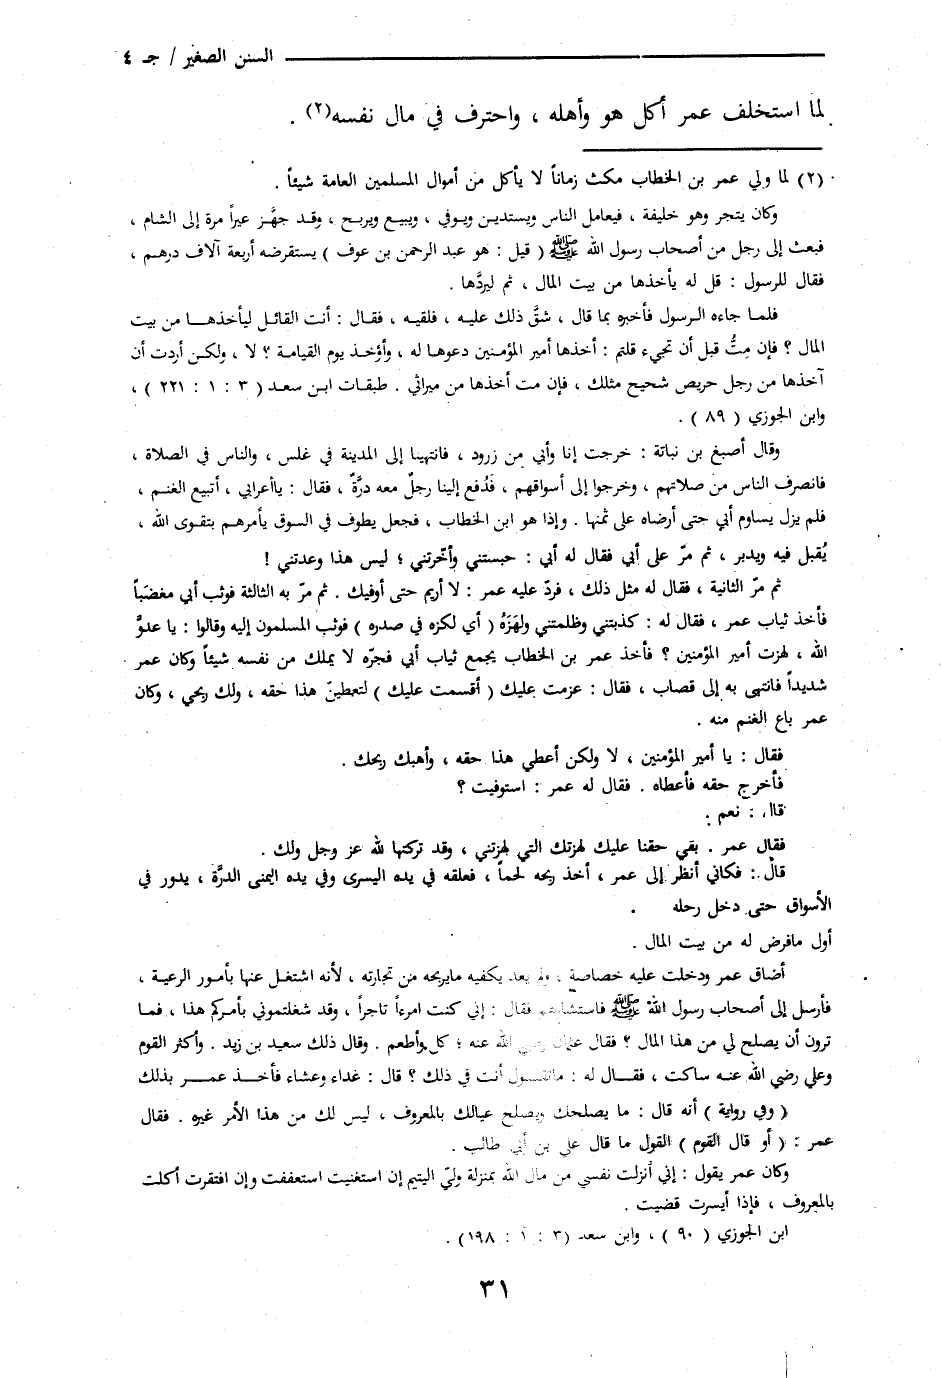 السنن الصغير / جـ ٤
لما استخلف عمر أكل هو وأهله ، واحترف في مال نفسه(٢) .
(٢) لما ولي عمر بن الخطاب مكث زماناً لا يأكل من أموال المسلمين العامة شيئاً .
وكان يتجر وهو خليفة ، فيعامل الناس ويستدين ويوفي ، ويبيع ويربح ، وقد جهَّز عيراً مرة إلى الشام ،
فبعث إلى رجل من أصحاب رسول الله ﷺ ( قيل : هو عبد الرحمن بن عوف ) يستقرضه أربعة آلاف درهم ،
فقال للرسول : قل له يأخذها من بيت المال ، ثم ليردَّها .
فلما جاءه الرسول فأخبره بما قال ، شقَّ ذلك عليه ، فلقيه ، فقال : أنت القائل ليأخذها من بيت
المال ؟ فإن مِتُّ قبل أن تجيء قلتم : أخذها أمير المؤمنين دعوها له ، وأؤخذ يوم القيامة ؟ لا ، ولكن أردت أن
آخذها من رجل حريص شحيح مثلك ، فإن مت أخذها من ميراثي . طبقات ابن سعد ( ٣ : ١ : ٢٢١ ) ،
وابن الجوزي ( ٨٩ ) .
وقال أصبغ بن نباتة : خرجت إنا وأبي من زرود ، فانتهينا إلى المدينة في غلس ، والناس في الصلاة ،
فانصرف الناس من صلاتهم ، وخرجوا إلى أسواقهم ، فَدُفع إلينا رجلٌ معه درَّةٌ ، فقال : ياأعرابي ، أتبيع الغنم ،
فلم يزل يساوم أبي حتى أرضاه على ثمنها . وإذا هو ابن الخطاب ، فجعل يطوف في السوق يأمرهم بتقوى الله ،
يُقبل فيه ويدبر ، ثم مرّ على أبي فقال له أبي : حبستني وأخّرتني ؛ ليس هذا وعدتني !
ثم مرّ الثانية ، فقال له مثل ذلك ، فردّ عليه عمر : لا أريم حتى أوفيك . ثم مرّ به الثالثة فوثب أبي مغضَباً
فأخذ ثياب عمر ، فقال له : كذبتني وظلمتني ولهَزَهُ ( أي لكزه في صدره ) فوثب المسلمون إليه وقالوا : يا عدوَّ
الله ، لهزت أمير المؤمنين ؟ فأخذ عمر بن الخطاب يجمع ثياب أبي فجرّه لا يملك من نفسه شيئاً وكان عمر
شديداً فانتهى به إلى قصاب ، فقال : عزمت عليك ( أقسمت عليك ) لتعطينّ هذا حقه ، ولك ربحي ، وكان
عمر باع الغنم منه .
فقال : يا أمير المؤمنين ، لا ولكن أعطي هذا حقه ، وأهبك ربحك .
فأخرج حقه فأعطاه . فقال له عمر : استوفيت ؟
قال : نعم .
فقال عمر . بقي حقنا عليك لهزتك التي لهزتني ، وقد تركتها لله عز وجل ولك .
قال : فكاني أنظر إلى عمر ، أخذ ربحه لحماً ، فعلقه في يده اليسرى وفي يده اليمنى الدرَّة ، يدور في
الأسواق حتى دخل رحله .
أول مافرض له من بيت المال .
أضاق عمر ودخلت عليه خصاصة ، ولم يعد يكفيه مايربحه من تجارته ، لأنه اشتغل عنها بأمور الرعية ،
فأرسل إلى أصحاب رسول الله ﷺ فاستشارهم فقال : إني كنت امرءاً تاجراً ، وقد شغلتموني بأمركم هذا ، فما
ترون أن يصلح لي من هذا المال ؟ فقال عثمان رضي الله عنه ؛ كل وأطعم . وقال ذلك سعيد بن زيد . وأكثر القوم
وعلي رضي الله عنه ساكت ، فقال له : ماتقول أنت في ذلك ؟ قال : غداء وعشاء فأخذ عمر بذلك
( وفي رواية ) أنه قال : ما يصلحك ويصلح عيالك بالمعروف ، ليس لك من هذا الأمر غيره . فقال
عمر : ( أو قال القوم ) القول ما قال علي بن أبي طالب .
وكان عمر يقول : إني أنزلت نفسي من مال الله بمنزلة وليّ اليتيم إن استغنيت استعففت وإن افتقرت أكلت
بالمعروف ، فإذا أيسرت قضيت .
ابن الجوزي ( ٩٠ ) ، وابن سعد (٣ : ١ : ١٩٨) .
٣١